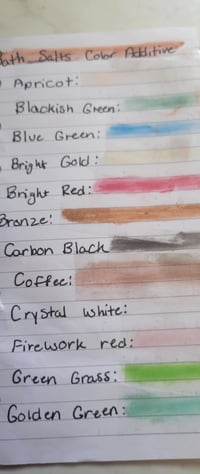 Bath Salts Color Additive
Apricot:
Blackish Green:
Blue Green:
Bright Gold:
Bright Red:
Bronze:
Carbon Black
Coffee:
Crystal white:
Firework red:
Green Grass:
Golden Green: